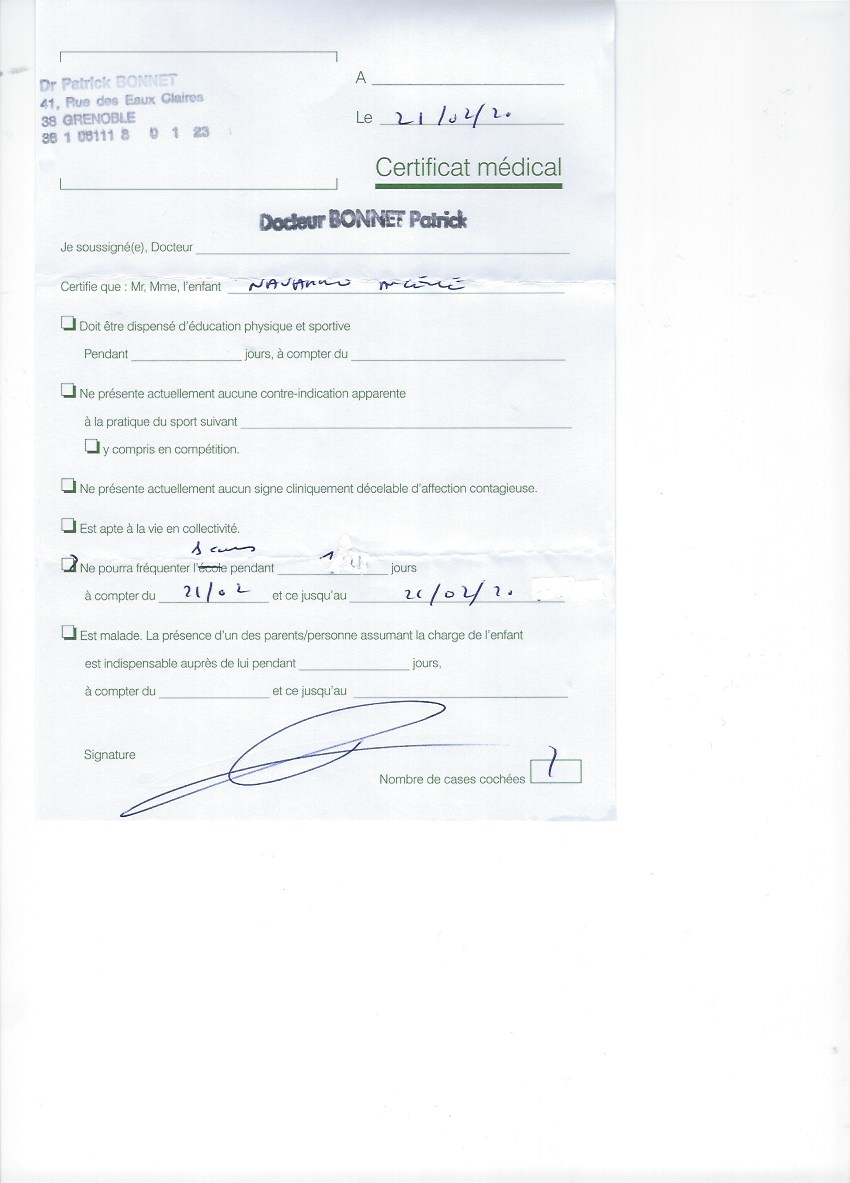 Dr Patrick BONNET
41, Rue des Eaux Claires
38 GRENOBLE
38 1 08111 8 0 1 23
A
Le 21/02/20
Certificat médical
Docteur BONNET Patrick
Je soussigné(e), Docteur
Certifie que : Mr, Mme, l'enfant NAVARRO
Doit être dispensé d'éducation physique et sportive
Pendant jours, à compter du
Ne présente actuellement aucune contre-indication apparente
à la pratique du sport suivant
y compris en compétition.
Ne présente actuellement aucun signe cliniquement décelable d'affection contagieuse.
Est apte à la vie en collectivité.
Ne pourra fréquenter l'école pendant 1 jours
à compter du 21/02 et ce jusqu'au 21/02/20
Est malade. La présence d'un des parents/personne assumant la charge de l'enfant
est indispensable auprès de lui pendant jours,
à compter du et ce jusqu'au
Signature
Nombre de cases cochées 1